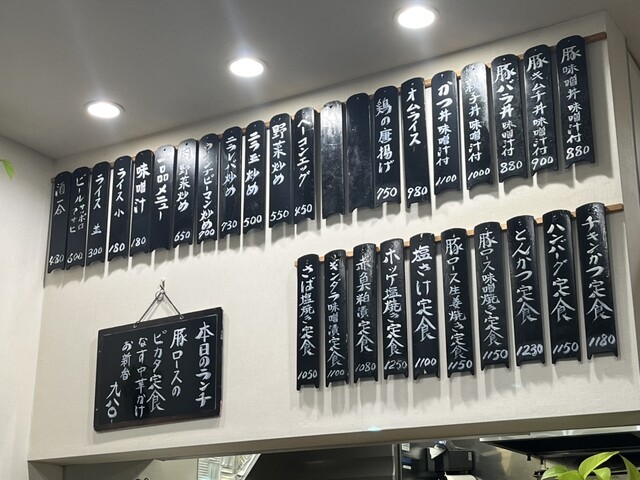 豚味噌丼味噌汁付 880
豚キムチ丼味噌汁付 900
豚バラ丼味噌汁付 880
子丼味噌汁付 1000
かつ丼味噌汁付 1100
オムライス 980
鶏の唐揚げ 750
ベーコンエッグ 450
野菜炒め 550
ニラ玉炒め 500
ニラレバ炒め 730
肉野菜炒め 650
一品メニュー
味噌汁 180
ライス 小 180
ライス 並 300
ビール サッポロ アサヒ 600
酒 一合 480
チキンかつ定食 1180
ハンバーグ定食 1150
とんかつ定食 1230
豚ロース味噌焼き定食 1150
豚ロース生姜焼き定食 1150
塩さけ定食 1100
ホッケ塩焼き定食 1250
赤魚粕漬定食 1080
ギンダラ味噌漬定食 1100
さば塩焼き定食 1050
本日のランチ
豚ロースの
ピカタ定食
なす中華がけ
お新香 九八〇